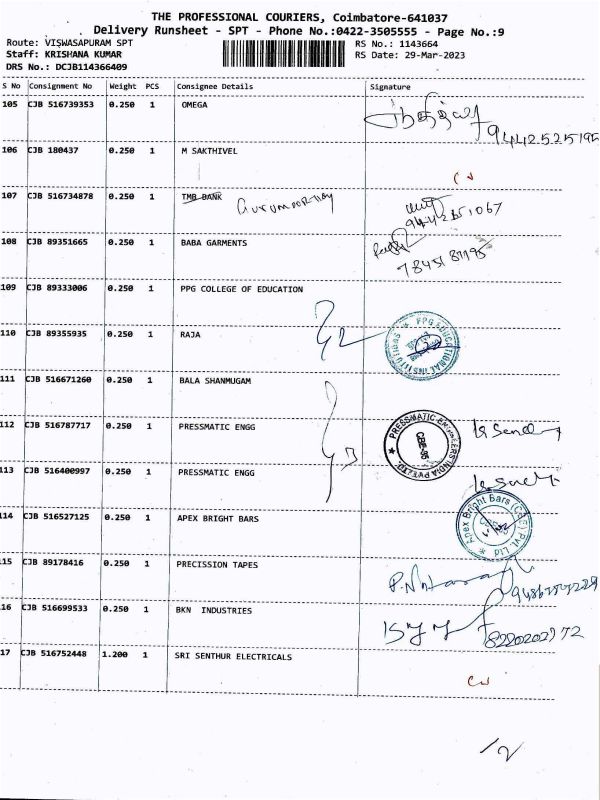 THE PROFESSIONAL COURIERS, Coimbatore-641037
Delivery Runsheet - SPT - Phone No.:0422-3505555 - Page No.:9
Route: VISWASAPURAM SPT
RS No.: 1143664
Staff: KRISHANA KUMAR
RS Date: 29-Mar-2023
DRS No.: DCJB114366409
S No Consignment No Weight PCS Consignee Details Signature
105 CJB 516739353 0.250 1 OMEGA
9442525195
106 CJB 180437 0.250 1 M SAKTHIVEL
107 CJB 516734878 0.250 1 TMB BANK
108 CJB 89351665 0.250 1 BABA GARMENTS
109 CJB 89333006 0.250 1 PPG COLLEGE OF EDUCATION
110 CJB 89355935 0.250 1 RAJA
PPG EDUCATIONAL INSTITUTIONS
111 CJB 516671260 0.250 1 BALA SHANMUGAM
112 CJB 516787717 0.250 1 PRESSMATIC ENGG
113 CJB 516400997 0.250 1 PRESSMATIC ENGG
114 CJB 516527125 0.250 1 APEX BRIGHT BARS
Apex Bright Bars (Cbe) Pvt. Ltd
15 CJB 89178416 0.250 1 PRECISSION TAPES
16 CJB 516699533 0.250 1 BKN INDUSTRIES
17 CJB 516752448 1.200 1 SRI SENTHUR ELECTRICALS